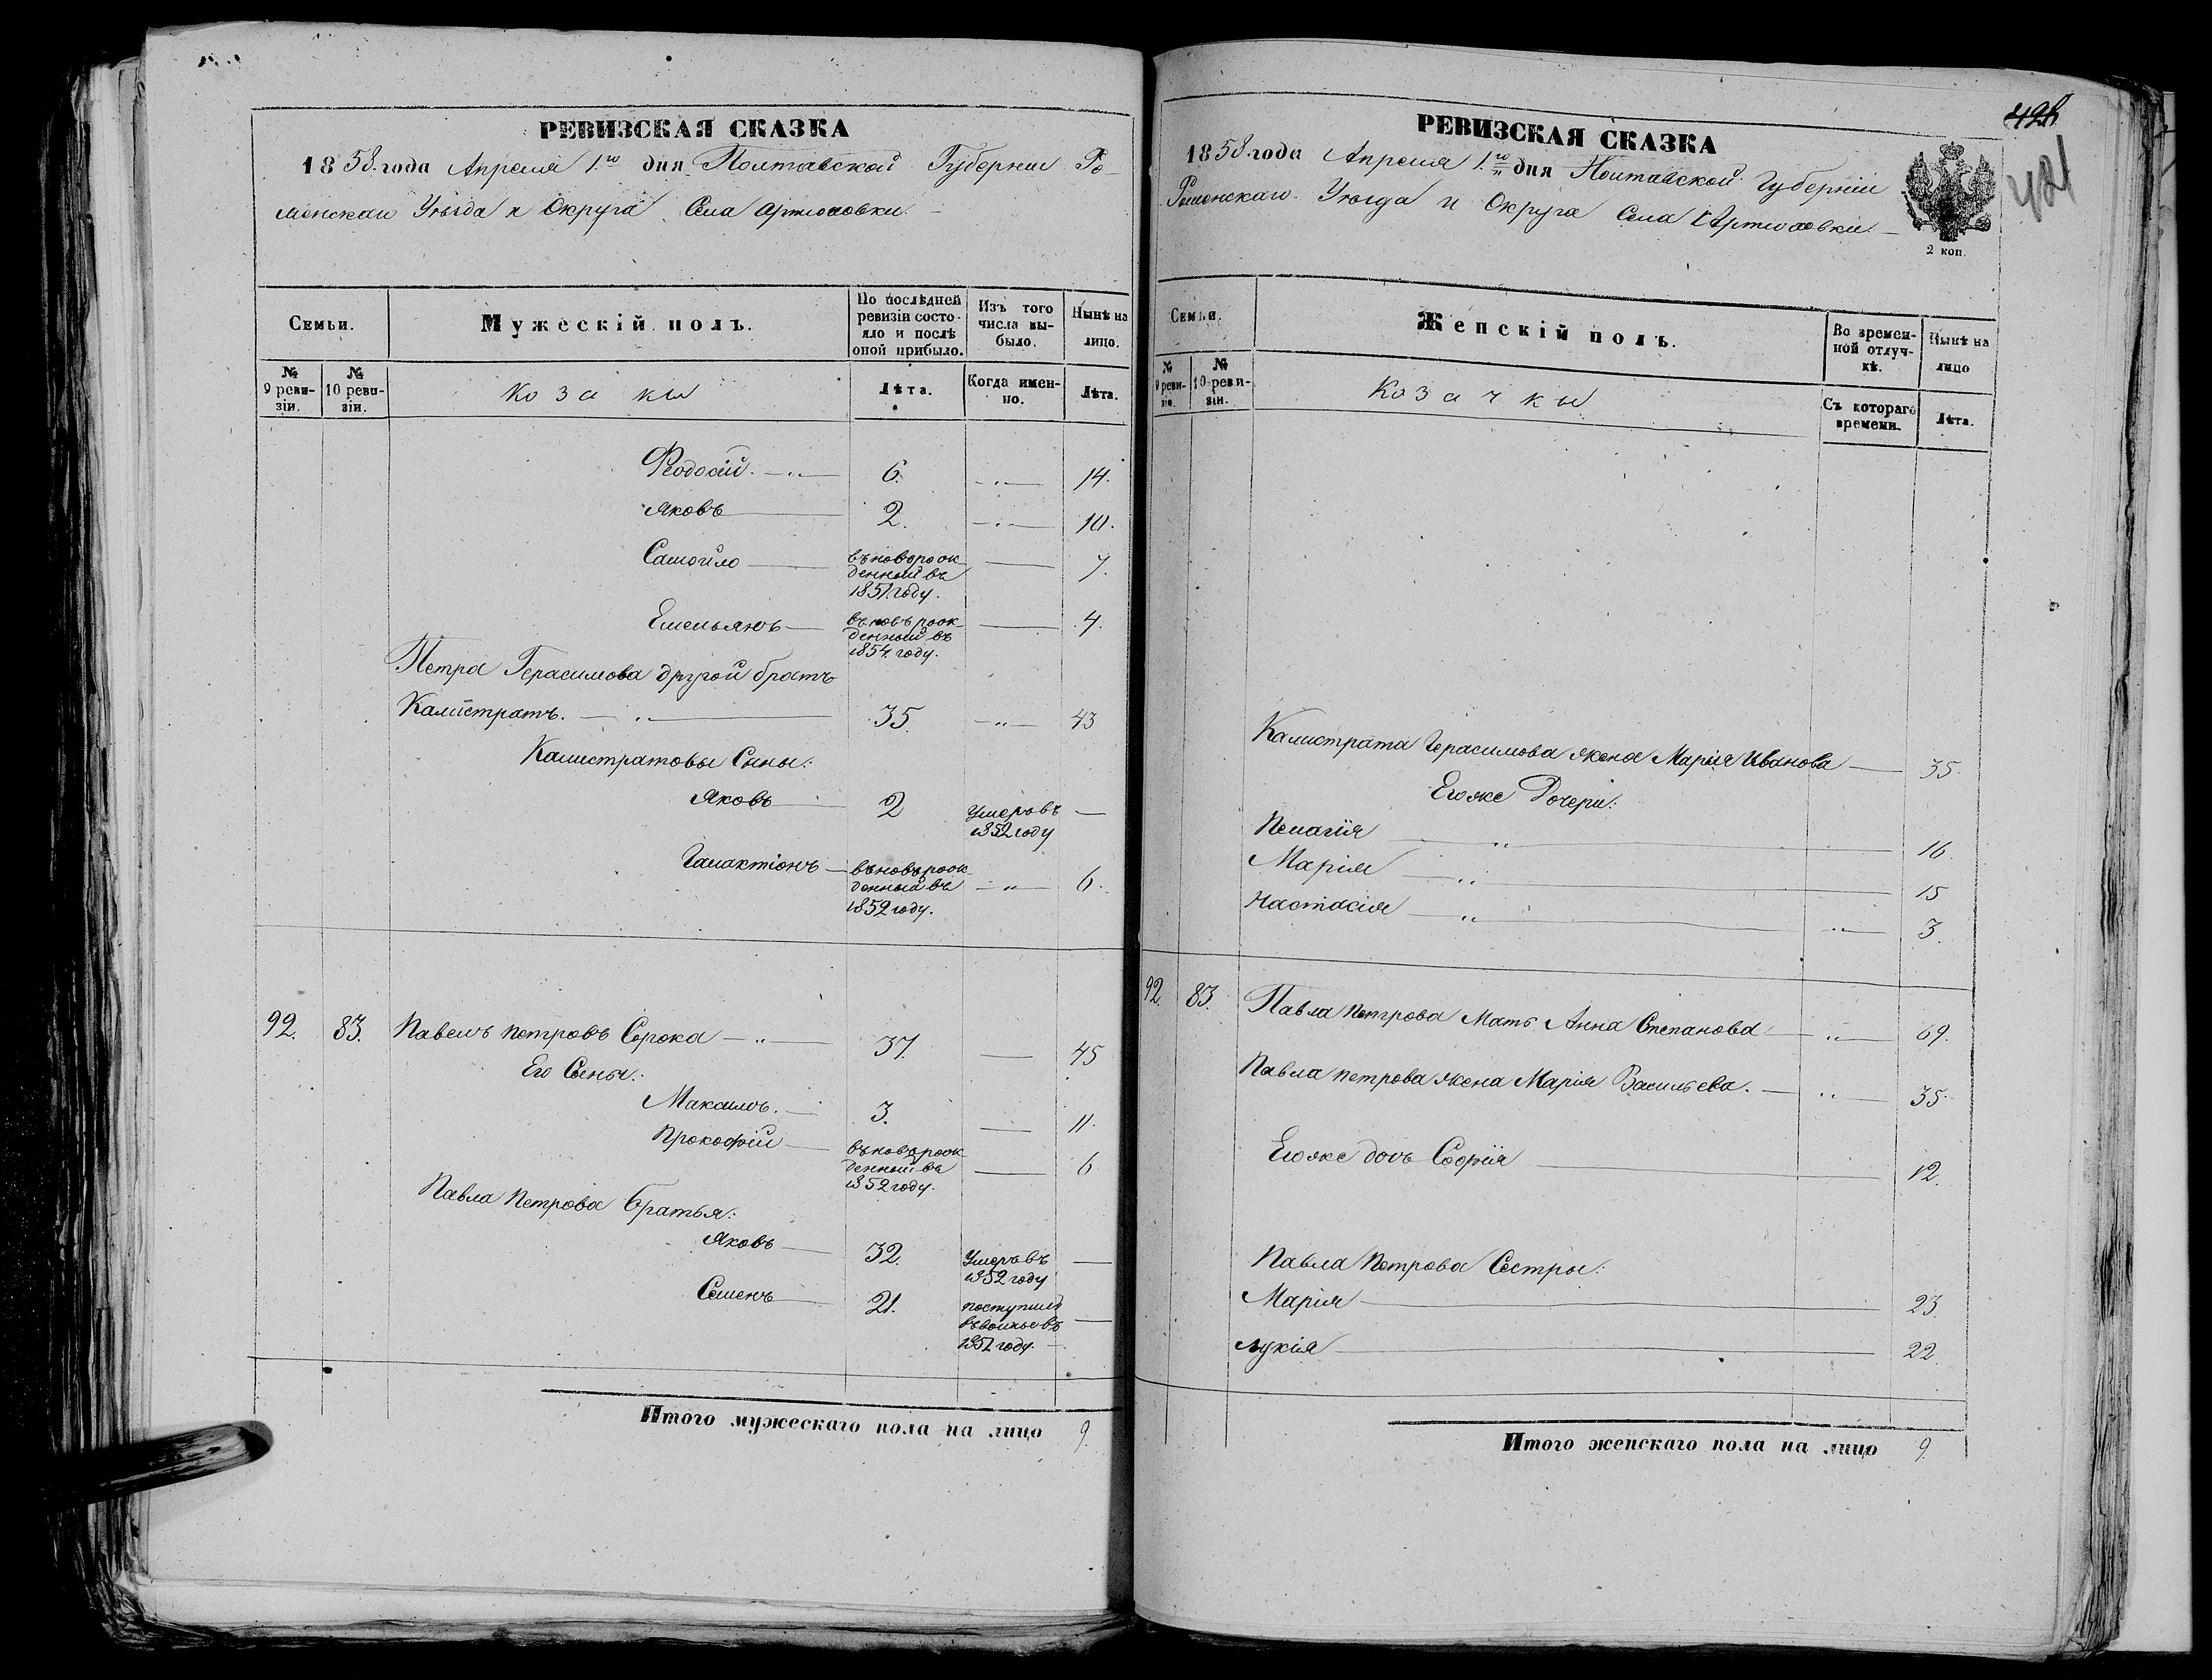 РЕВИЗСКАЯ СКАЗКА
1858. года Апреля 1.го дня Полтавской Губернии Ро-
менскаго Уѣзда и Округа Села Артюховки.
Семьи.
Мужескій полъ.
По послѣдней ревизіи состояло и послѣ оной прибыло.
Изъ того числа выбыло.
Нынѣ на лицо.
№ 9 ревизіи.
№ 10 ревизіи.
Козаки
Лѣта.
Когда именно.
Лѣта.
Феодосій. — 6. — 14.
Яковъ — 2. — 10.
Самойло — въновь рож-
денный въ — 7.
1851. году.
Емельянъ — въновь рож-
денный въ — 4.
1854. году.
Петра Герасимова другой братъ
Калистратъ. — 35. — 43
Калистратовы Сыны:
Яковъ — 2 Умеръ въ —
1852 году
Галактіонъ — въновь рож-
денный въ — 6.
1852 году.
92. 83. Павелъ Петровъ Сорока — 37. — 45
Его Сыны:
Максимъ. — 3. — 11.
Прокофій — въновь рож-
денный въ — 6
1852 году.
Павла Петрова братья:
Яковъ — 32. Умеръ въ —
1852 году
Семенъ — 21. поступилъ
—
году.
Итого мужескаго пола на лицо 9.
428
421
РЕВИЗСКАЯ СКАЗКА
1858. года Апреля 1.го дня Полтавской Губерніи
Роменскаго Уѣзда и Округа Села Артюховки. —
2 коп.
Семьи.
Женскій полъ.
Во временной отлучкѣ.
Нынѣ на лицо
№ 9 ревизіи.
№ 10 ревизіи.
Козачки
Съ котораго времени.
Лѣта.
Калистрата Герасимова жена Марія Иванова — 35.
Егоже Дочери:
Пелагія — 16.
Марія — 15
Настасія — 3.
92. 83. Павла Петрова Мать Анна Степанова — 69.
Павла Петрова жена Марія Васильева. — 35.
Егоже дочь Софія — 12.
Павла Петрова Сестры:
Марія — 23.
Лукія — 22.
Итого женскаго пола на лицо 9.